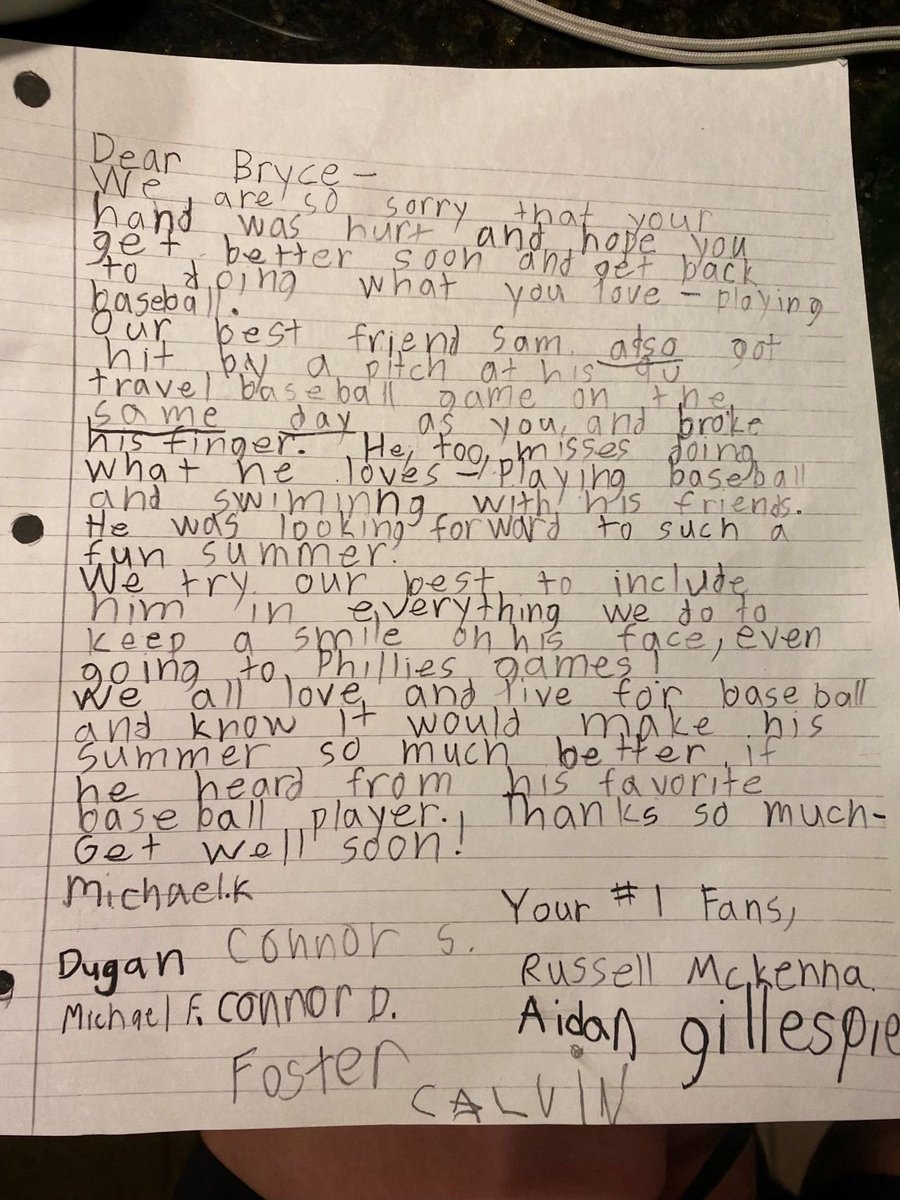 Dear Bryce-
We are so sorry that your
hand was hurt and hope you
get better soon and get back
to doing what you love - playing
baseball.
Our best friend Sam also got
hit by a pitch at his 9U
travel baseball game on the
same day as you, and broke
his finger. He, too, misses doing
what he loves - playing baseball
and swiminng with his friends.
He was looking forward to such a
fun summer.
We try our best to include
him in everything we do to
keep a smile on his face, even
going to Phillies games!
We all love and live for baseball
and know it would make his
summer so much better if
he heard from his favorite
baseball player. Thanks so much-
Get well soon!
Michael.K
Your #1 Fans,
Dugan Connor S.
Russell McKenna
Michael F. Connor D.
Aidan gillespie
Foster
CALVIN